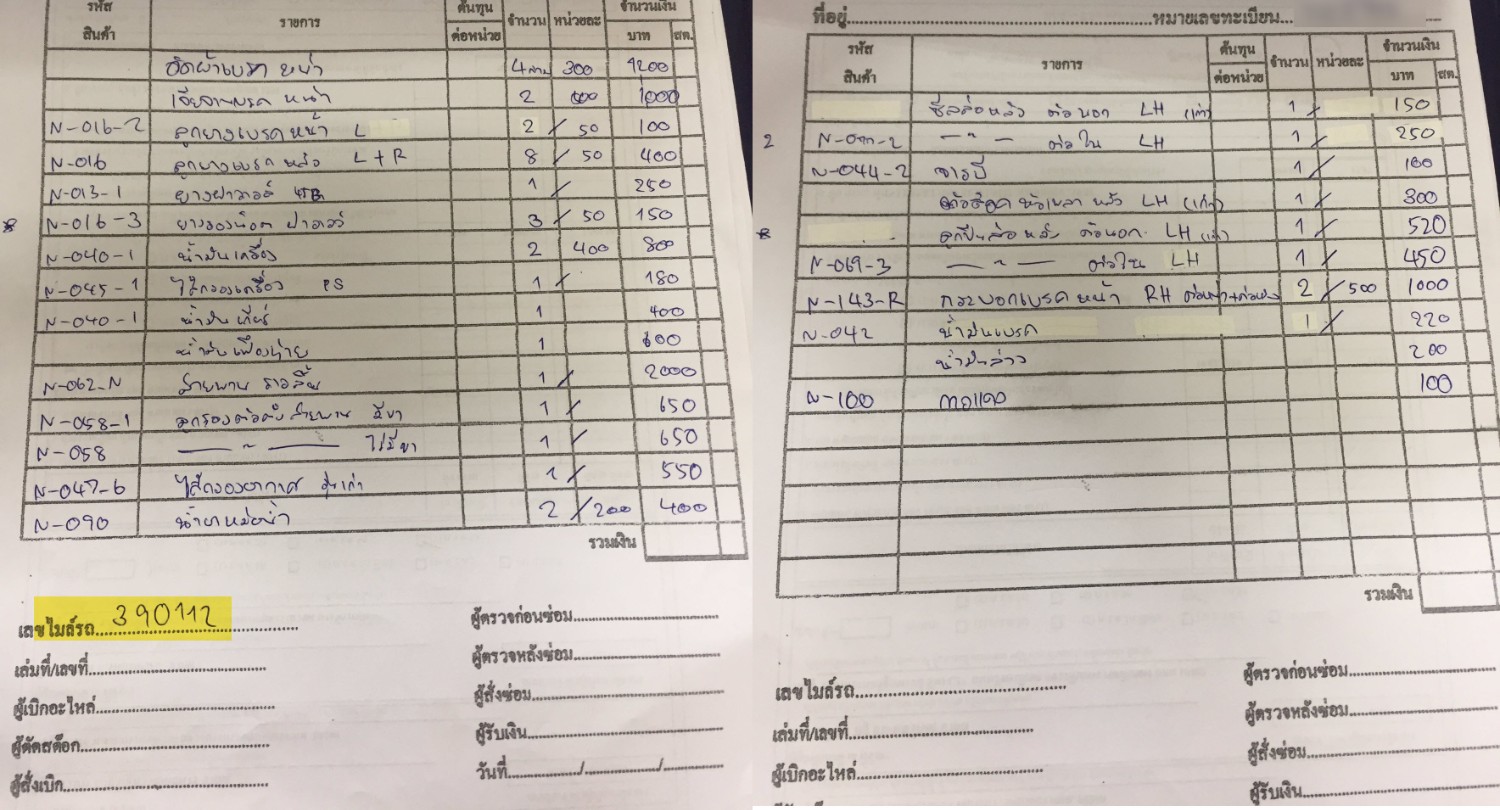 รหัส สินค้า รายการ ต้นทุน ต่อหน่วย จำนวน หน่วยละ จำนวนเงิน บาท สต.
อัดผ้าเบรค หน้า 4 300 1200
เจียจานเบรค หน้า 2 1000
N-016-2 ลูกยางเบรคหน้า L 2 / 50 100
N-016 ลูกยางเบรค หลัง L+R 8 / 50 400
N-013-1 ยางฝาวาลว์ 1 / 250
N-016-3 ยางรองน็อต ฝาวาลว์ 3 / 50 150
N-040-1 น้ำมันเครื่อง 2 400 800
N-045-1 ไส้กรองเครื่อง PS 1 / 180
N-040-1 น้ำมันเกียร์ 1 400
น้ำมันเฟืองท้าย 1 600
N-062-N สายพาน ราวลิ้น 1 / 2000
N-058-1 ลูกรอกตัวตั้งสายพาน มีขา 1 / 650
N-058 — " — ไม่มีขา 1 / 650
N-047-6 ไส้กรองอากาศ รุ่นเก่า 1 / 550
N-090 น้ำยาหม้อน้ำ 2 / 200 400
รวมเงิน
เลขไมล์รถ 390112
เล่มที่/เลขที่
ผู้เบิกอะไหล่
ผู้ตัดสต๊อก
ผู้สั่งเบิก
ผู้ตรวจก่อนซ่อม
ผู้ตรวจหลังซ่อม
ผู้สั่งซ่อม
ผู้รับเงิน
วันที่ / /
ที่อยู่ หมายเลขทะเบียน
รหัส สินค้า รายการ ต้นทุน ต่อหน่วย จำนวน หน่วยละ จำนวนเงิน บาท สต.
ซีลล้อหลัง ตัวนอก LH (เก่า) 1 / 150
2 — " — ตัวใน LH 1 / 250
N-044-2 จารบี 1 / 100
LH (เก่า) 1 / 300
ลูกปืนล้อหลัง ตัวนอก LH (เก่า) 1 / 520
N-069-3 — " — ตัวใน LH 1 / 450
N-143-R กระบอกเบรคหน้า RH 2 / 500 1000
N-042 น้ำมันเบรค 1 / 220
น้ำมันล้าง 200
N-100 กาวแดง 100
รวมเงิน
เลขไมล์รถ
เล่มที่/เลขที่
ผู้เบิกอะไหล่
ผู้ตรวจก่อนซ่อม
ผู้ตรวจหลังซ่อม
ผู้สั่งซ่อม
ผู้รับเงิน